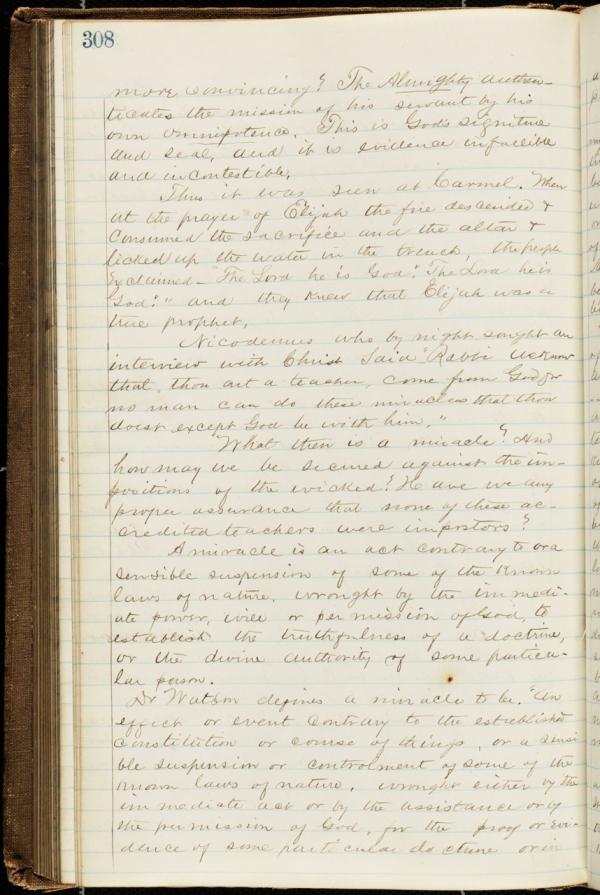 308
more convincing? The Almighty authen-
ticates the mission of his servant by his
own omnipotence. This is God's signiture
and seal, and it is evidence infallible
and incontestible.
Thus it was seen at Carmel. When
at the prayer of Elijah the fire descended &
consumed the sacrifice and the altar &
licked up the water in the trench, the people
exclaimed - "The Lord he is God! The Lord he is
God!" and they knew that Elijah was a
true prophet.
Nicodemus who by night sought an
interview with Christ said "Rabbi we know
that thou art a teacher, come from God for
no man can do these miracles that thou
doest except God be with him."
What then is a miracle? And
how may we be secured against the im-
positions of the wicked? Have we any
proper assurance that none of these ac-
credited teachers were impostors?
A miracle is an act contrary to or a
sensible suspension of some of the known
laws of nature, wrought by the immedi-
ate power, will or permission of God, to
establish the truthfulness of a doctrine,
or the divine authority of some particu-
lar person.
Dr Watson defines a miracle to be. "An
effect or event contrary to the established
constitution or course of things, or a sensi
ble suspension or controlment of some of the
known laws of nature, wrought either by the
immediate act or by the assistance or by
the permission of God, for the proof or evi-
dence of some particular doctrine or in